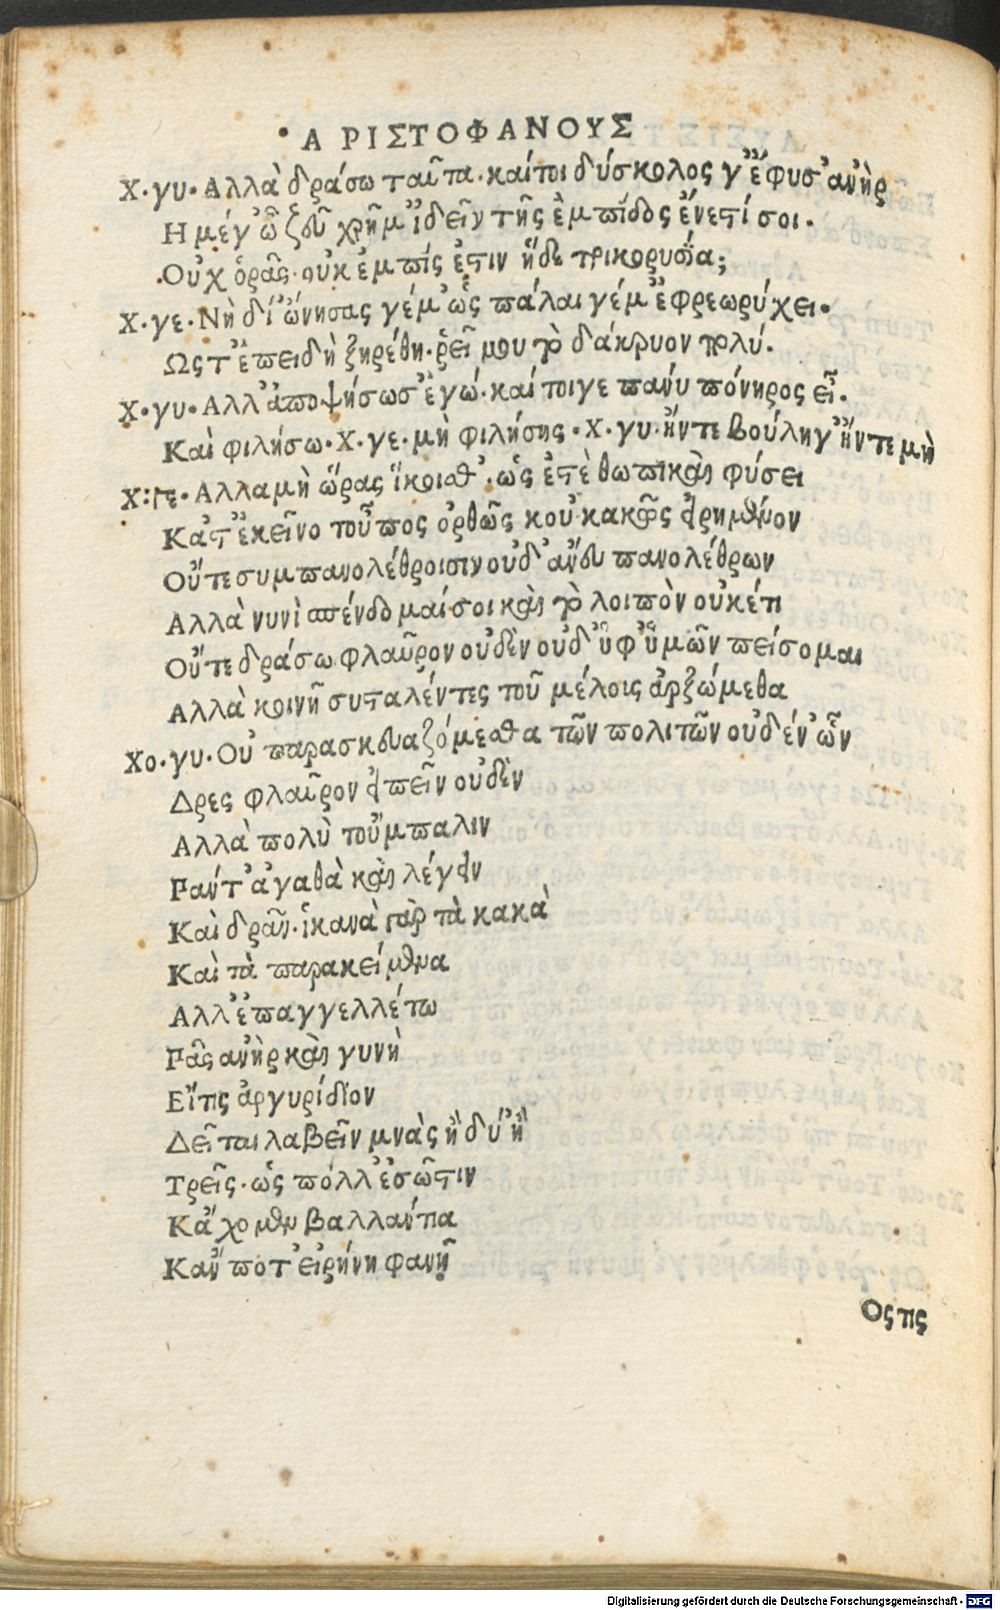 ΑΡΙΣΤΟΦΑΝΟΥΣ
Χ·γυ· Αλλὰ δράσω ταῦτα· καίτοι δύσκολος γ᾽ ἔφυσ᾽ ἀνὴρ
Η μέγ᾽ ὦ ζεῦ χρῆμ᾽ ἰδεῖν τῆς ἐμπίδος ἔνεστί σοι·
Οὐχ ὁρᾶς· οὐκ ἐμπίς ἐστιν ἥδε τρικορυσία;
Χ·γε· Νὴ δί᾽ ὤνησας γέμ᾽ ὡς πάλαι γέμ᾽ ἐφρεωρύχει·
Ως τ᾽ ἐπειδὴ ξηρέθη· ῥεῖ μου τὸ δάκρυον πολύ·
Χ·γυ· Αλλ᾽ ἀποψήσωσ᾽ ἐγώ· καί τοιγε πανύ πόνηρος εἶ·
Καὶ φιλήσω· Χ·γε· μὴ φιλήσης· Χ·γυ· ἤντε βούλη γ᾽ ἤντε μὴ
Χ:γε· Αλλαμὴ ὥρας ἵκοισθ᾽· ὡς ἐστὲ θωπικαὶ φύσει
Κᾀστ᾽ ἐκεῖνο τοὖπος ὀρθῶς κοὐ κακῶς εἰρημένον
Οὔτε συμπανολέθροισιν οὐδ᾽ ἄνευ πανολέθρων
Αλλὰ νυνὶ σπένδομαί σοι καὶ τὸ λοιπὸν οὐκέτι
Οὔτε δράσω φλαῦρον οὐδὲν οὐδ᾽ ὑφ᾽ ὑμῶν πείσομαι
Αλλὰ κοινῇ συσταλέντες τοῦ μέλοις ἀρξώμεθα
Χο·γυ· Οὐ παρασκευαζόμεσθα τῶν πολιτῶν οὐδέν᾽ ὦν
Δρες φλαῦρον εἰπεῖν οὐδὲν
Αλλὰ πολὺ τοὔμπαλιν
Ρανt᾽ ἀγαθὰ καὶ λέγειν
Καὶ δρᾶν· ἱκανὰ γὰρ τὰ κακὰ
Καὶ τὰ παρακείμενα
Αλλ᾽ ἐπαγγελλέτω
Ρᾶς ανὴρ καὶ γυνὴ
Εἴτις ἀργυρίδιον
Δεῖται λαβεῖν μνὰς ἢ δύ᾽ ἢ
Τρεῖς· ὡς πόλλ᾽ ἐσῶστιν
Κἄχομεν βαλλάντια
Κἄν ποτ᾽ εἰρήνη φανῇ
Οςτις
Digitalisierung gefördert durch die Deutsche Forschungsgemeinschaft - DFG